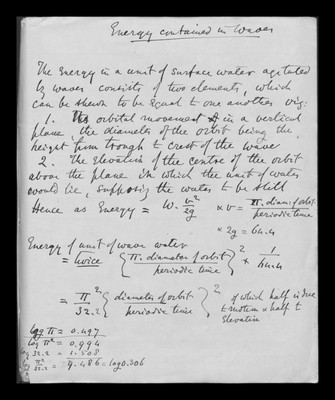 Energy contained in Waves
The Energy in a unit of surface water agitated
by waves consists of two elements, which
can be shewn to be equal to one another viz:
1. The orbital movement in a vertical
plane, the diameter of the orbit being the
height from trough to crest of the wave
2. The elevation of the centre of the orbit
above the plane in which the unit of water
would lie, supposing the water to be still
Hence as Energy = W. v²/2g & v = π. diam: of orbit / periodic time
& 2g = 64.4
Energy of unit of wave water
= twice { π. diameter of orbit / periodic time }² × 1/64.4
= π²/32.2 { diameter of orbit / periodic time }² of which half is due
to motion & half to
Elevation
log π = 0.497
log π² = 0.994
log 32.2 = 1.508
log π²/32.2 = 9.486 = log 0.306